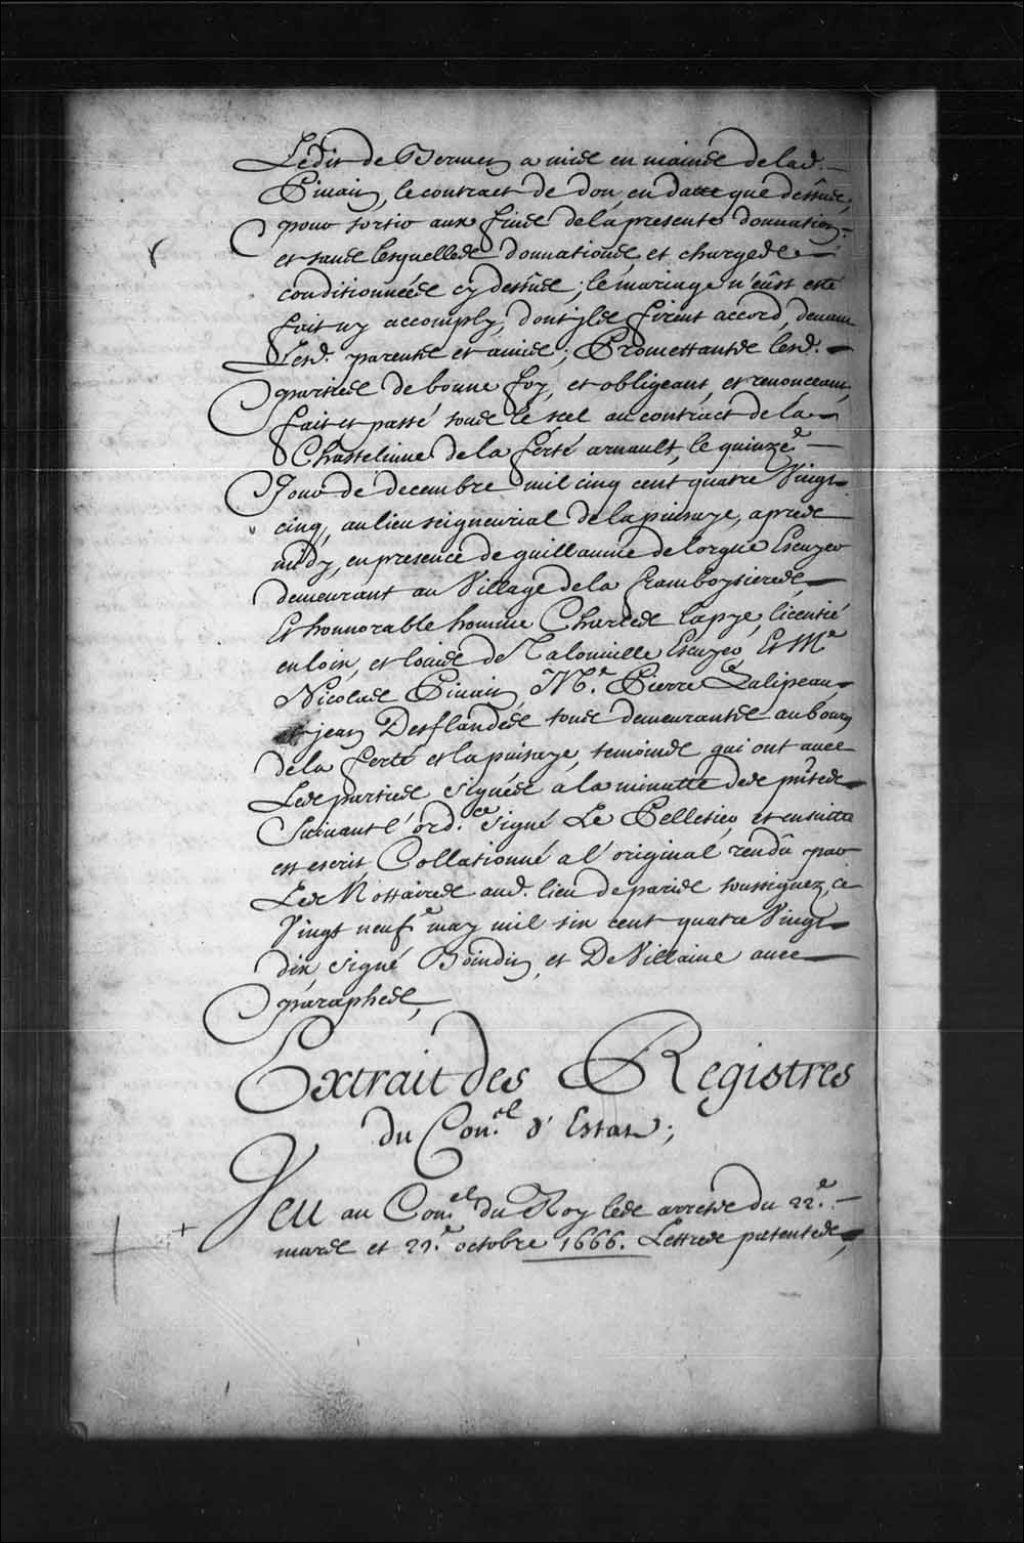 Ledit de Bermen a mise en mains de lad.
Pinain, le contract de don, en datte que dessus,
pour sortir aux fins de la presente donnation
et sans lesquelles donnations, et charges
conditionnées cy dessus; le mariage n'eust esté
fait ny accomply, dont ils firent accord, devant
Lesd. parents et amis; Promettants lesd.
parties de bonne foy, et obligeant, et renonceant,
fait et passé sous le scel au contract de la
Chastelinne de la ferté arnault, le quinze.e
Jour de decembre mil cinq cent quatre Vingt
cinq, au lieu seigneurial de la puisaye, apres
midy, en presence de guillaume de lorgue Escuyer
demeurant au Village de la framboysieres,
Et honnorable homme Charles lapye, licentié
en loix, et louis de Talonuille Escuyer Et M.e
Nicolas Pinain, M.e Pierre Galipeau,
jean Desflandes tous demeurants au bourg
de la ferté et la puisaye, temoins qui ont avec
Les parties signés a la minutte des pñtes
Suivant l'ord.ce signé Le Pelletier, et ensuitte
est escrit, Collationné a l'original rendû par
Les Nottaires aud. lieu de paris soussignez ce
Vingt neuf.e may mil six cent quatre Vingt
dix, signé Boindin, et De Villaine avec
paraphes,
Extrait des Registres
du Con.el d'Estat;
Veu au Con.el du Roy les arrests du 22.e
mars et 27.e octobre 1666. Lettres patentes